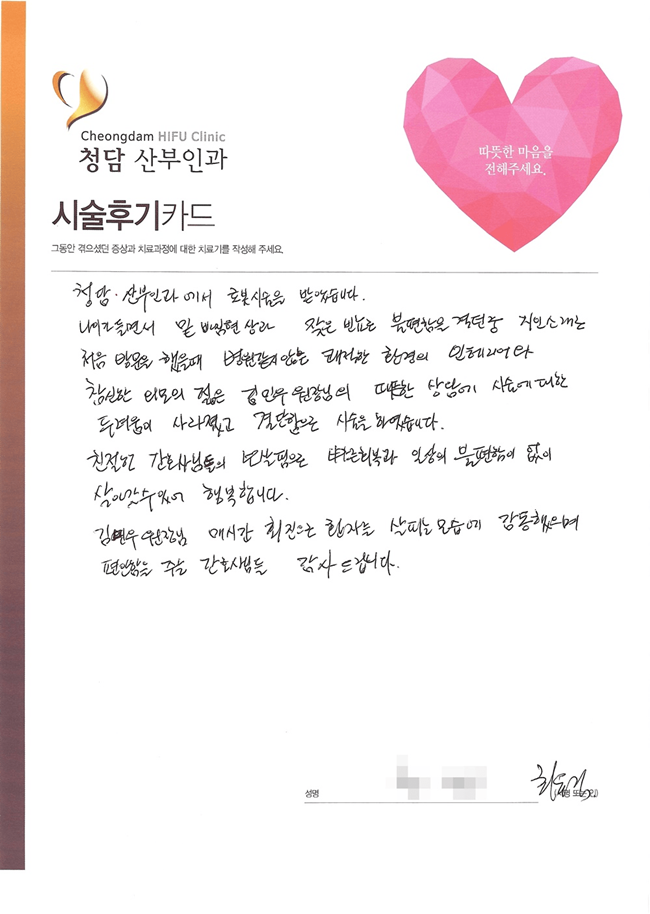 Cheongdam HIFU Clinic
청담 산부인과
따뜻한 마음을
전해주세요.
시술후기카드
그동안 겪으셨던 증상과 치료과정에 대한 치료기를 작성해 주세요.
청담·산부인과에서 로봇시술을 받았습니다.
나이가 들면서 밑 빠짐현상과 잦은 빈뇨로 불편함을 겪던중 지인소개로
처음 방문을 했을때 병원같지 않은 쾌적한 환경의 인테리어와
참신한 외모의 젊은 김민우 원장님의 따뜻한 상담에 시술에 대한
두려움이 사라졌고 결단함으로 시술을 하였습니다.
친절한 간호사님들의 보살핌으로 빠른회복과 일상의 불편함이 없이
살아갈수있어 행복합니다.
김민우 원장님 매시간 회진으로 환자를 살피는 모습에 감동했으며
편안함을 주는 간호사님들 감사드립니다.
성명